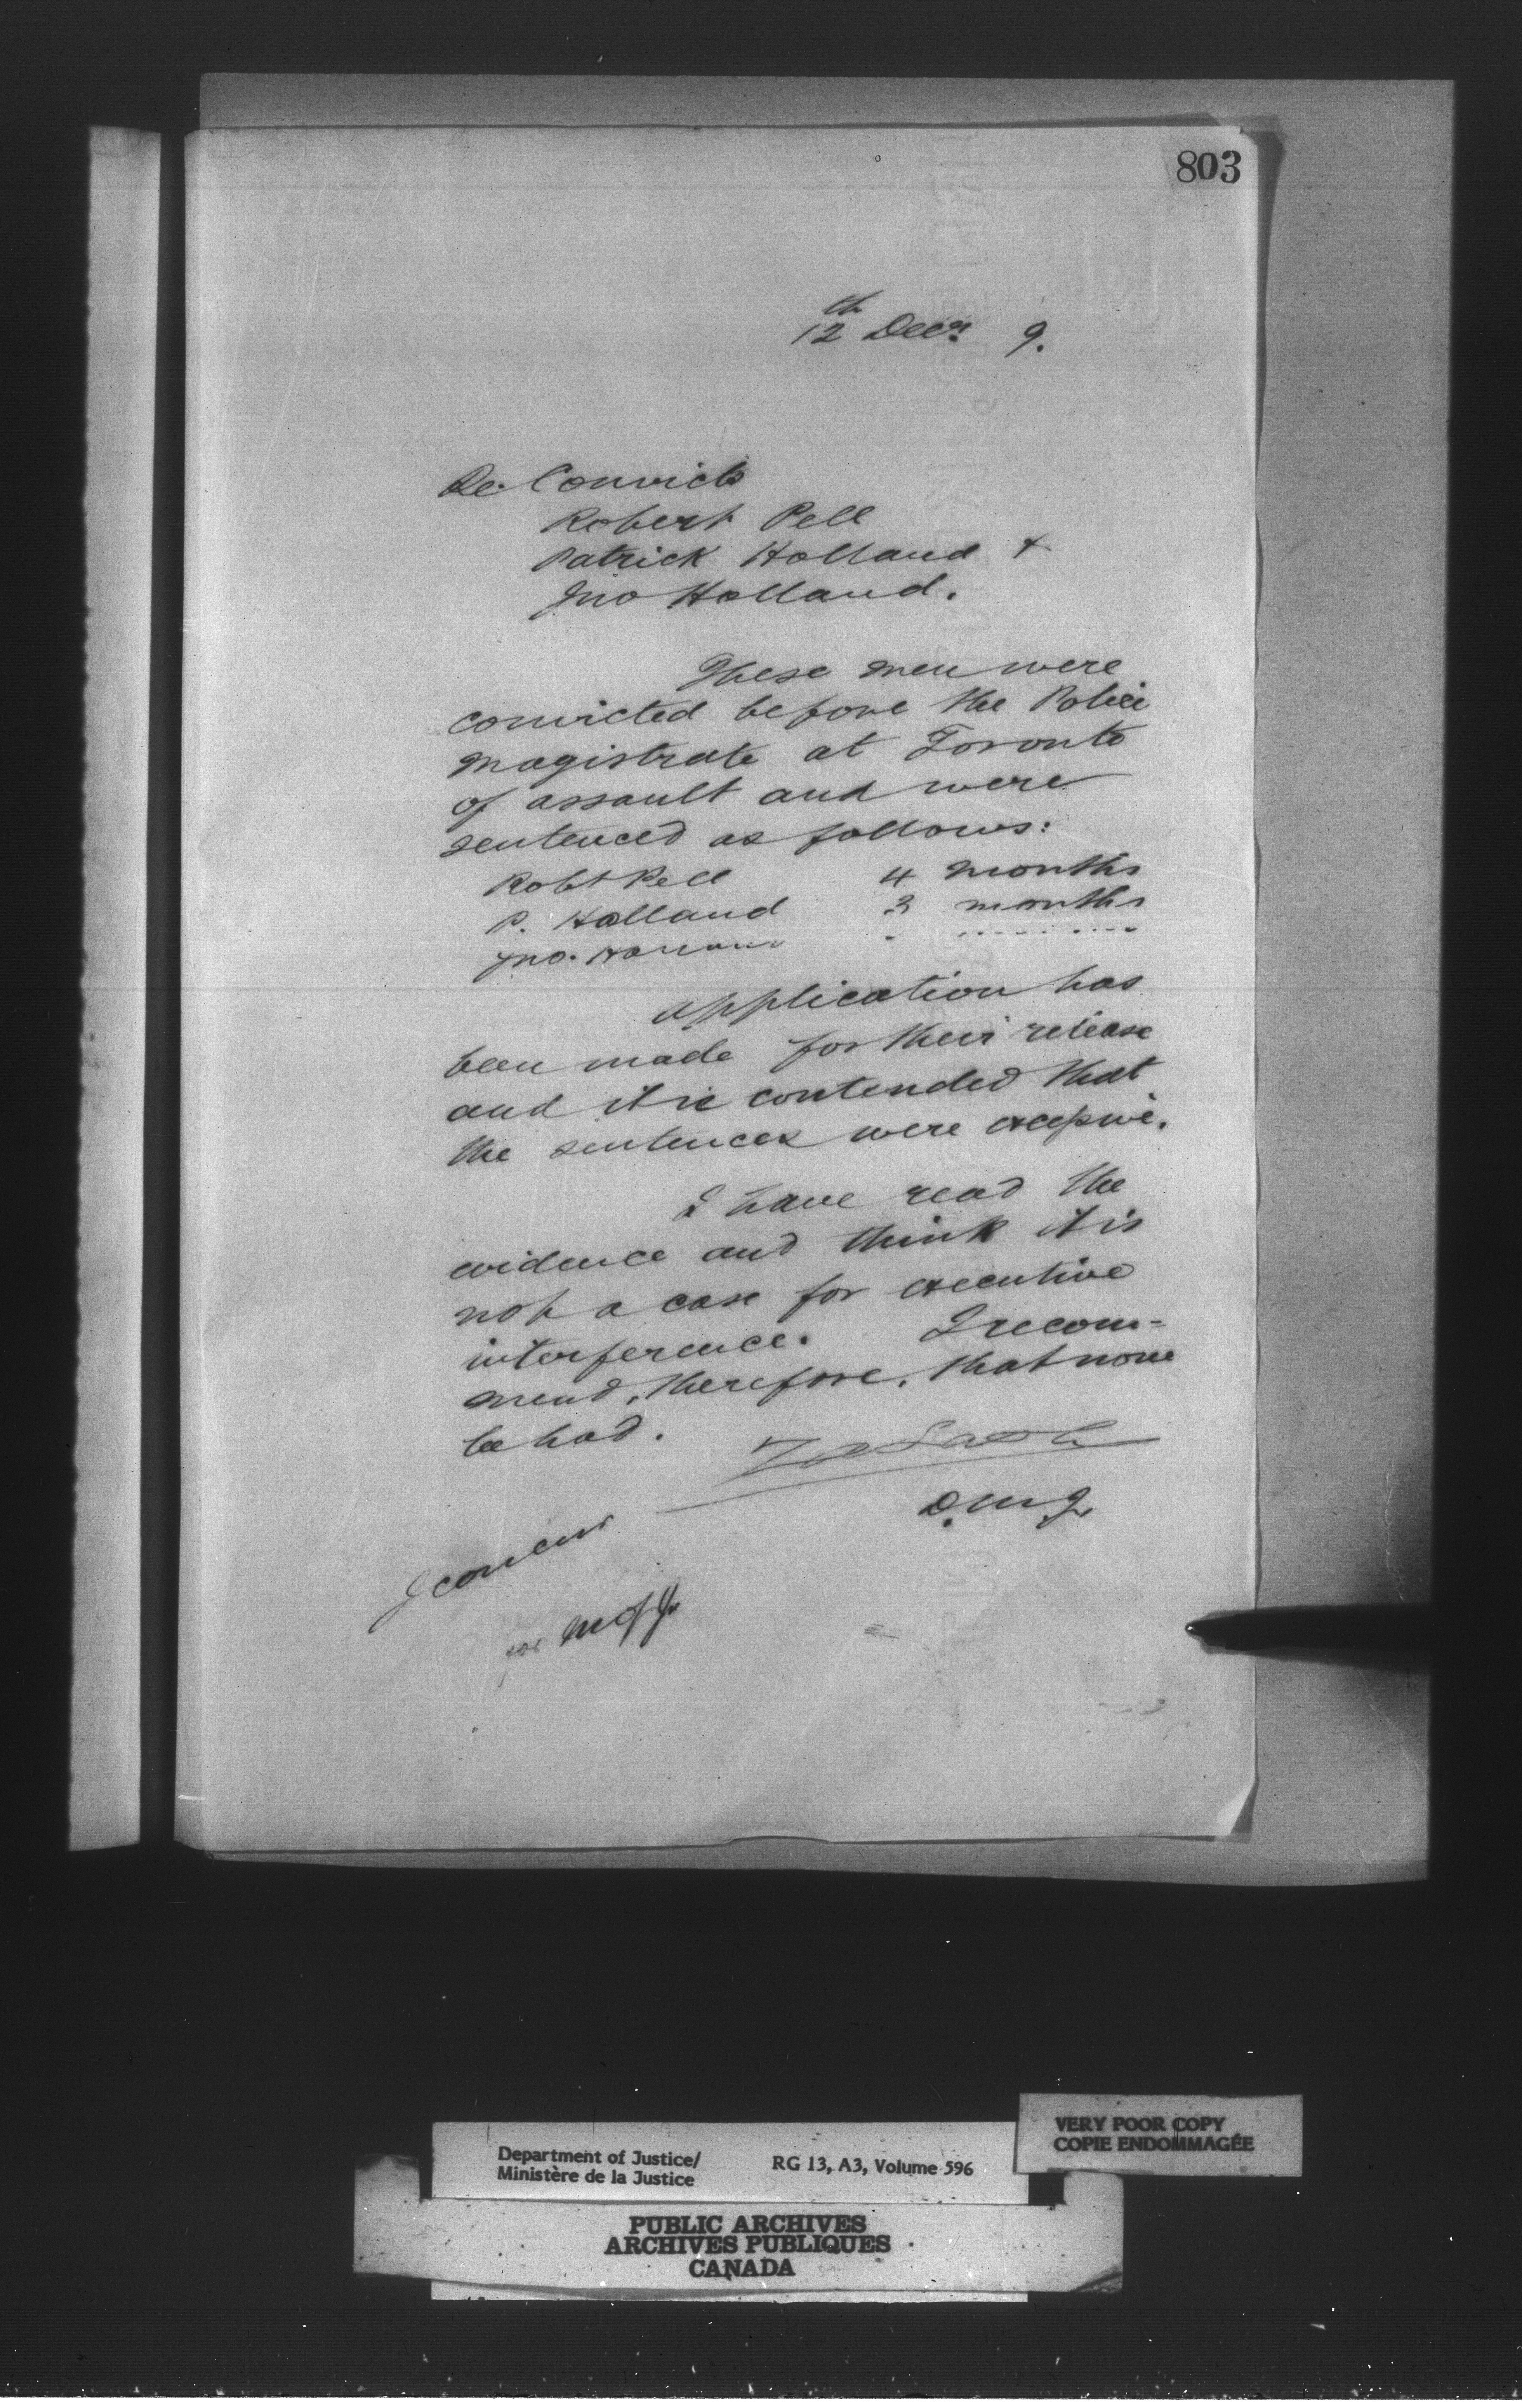 803
12th Decr 9.
Re. Convicts
Robert Pell
Patrick Holland &
Jno Holland.
These men were
convicted before the Police
Magistrate at Toronto
of assault and were
sentenced as follows:
Robt Pell 4 months
P. Holland 3 months
Jno. Holland " "
Application has
been made for their release
and it is contended that
the sentences were excessive.
I have read the
evidence and think it is
not a case for executive
interference. I recom=
mend, therefore, that none
be had.
D.M.J.
I concur
for M of J.
VERY POOR COPY
COPIE ENDOMMAGÉE
Department of Justice/
Ministère de la Justice
RG 13, A3, Volume 596
PUBLIC ARCHIVES
ARCHIVES PUBLIQUES
CANADA